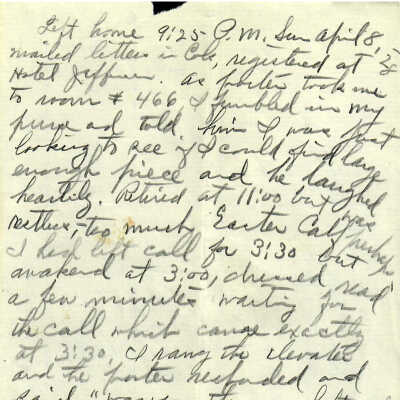 Left home 9:25 P.M. Sun April 8, '28
mailed letters in Col, registered at
Hotel Jefferson. As porter took me
to room # 466 I fumbled in my
purse and told him I was just
looking to see if I could find large
enough piece and he laughed
heartily. Retired at 11:00 but was
restless, too much Easter Cafe perhaps
I had left call for 3:30 but
awakend at 3:00, dressed read
a few minutes waiting for
the call which came exactly
at 3:30. I rang the elevator
and the porter responded and